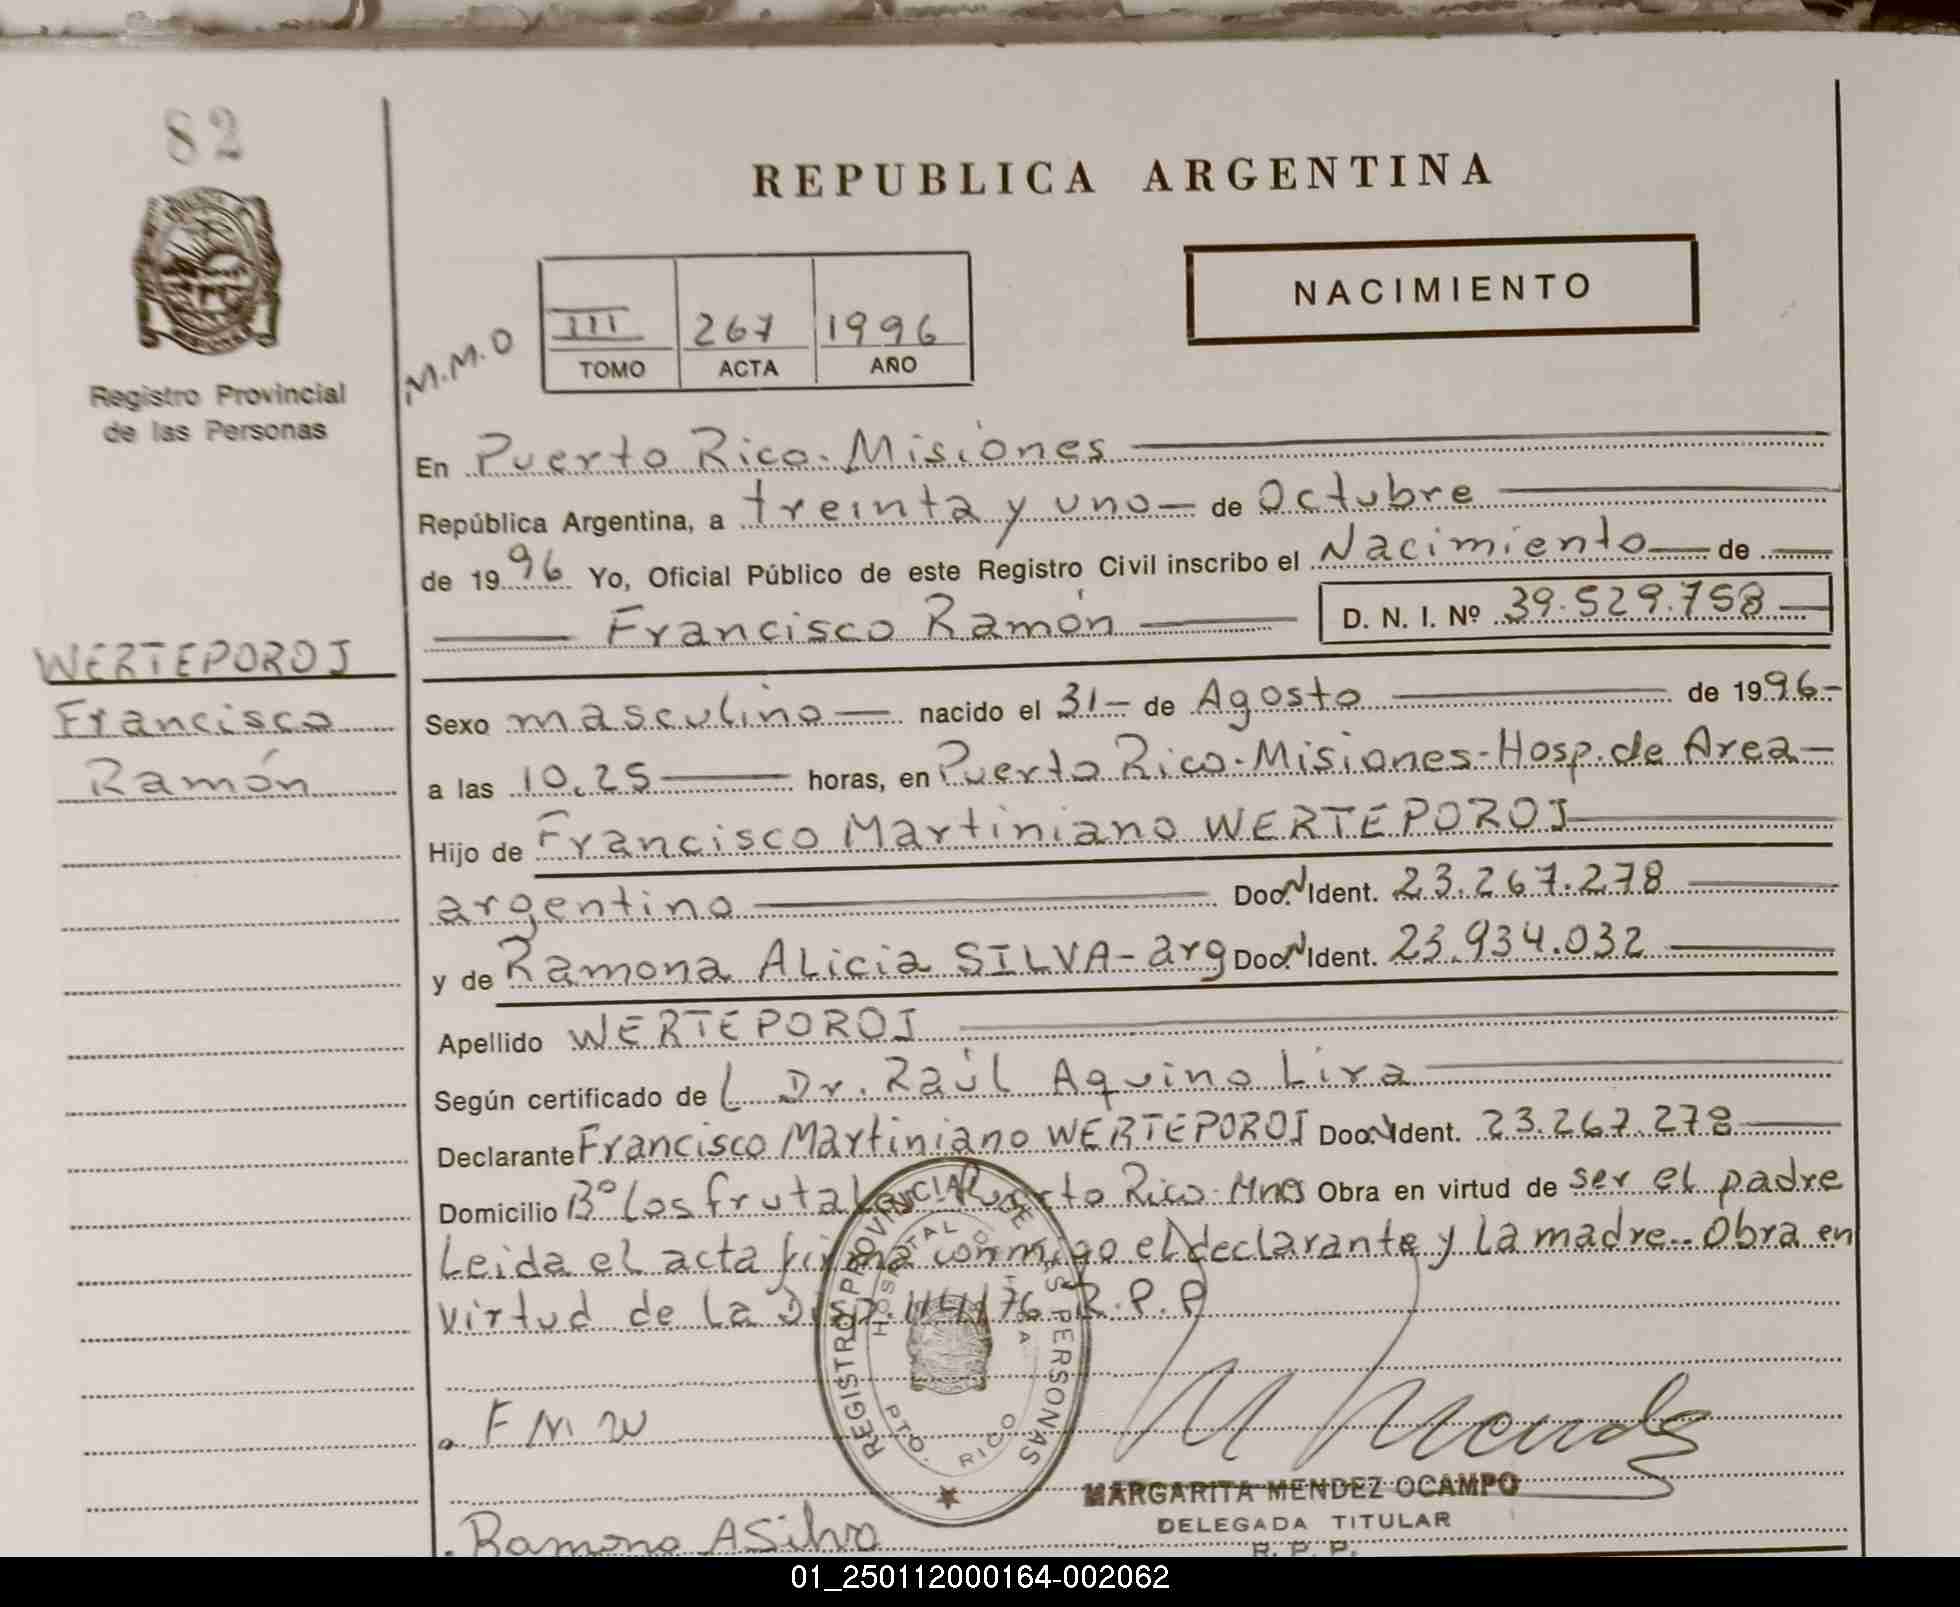 82
REPUBLICA ARGENTINA
NACIMIENTO
M.M.O
III 267 1996
TOMO ACTA AÑO
Registro Provincial
de las Personas
En Puerto Rico. Misiones
República Argentina, a treinta y uno de Octubre
de 1996 Yo, Oficial Público de este Registro Civil inscribo el Nacimiento de
Francisco Ramón D. N. I. Nº 39.529.758
WERTEPOROJ
Francisco
Ramón
Sexo masculino nacido el 31 de Agosto de 1996
a las 10.25 horas, en Puerto Rico-Misiones-Hosp. de Area
Hijo de Francisco Martiniano WERTEPOROJ
argentino Doc. N Ident. 23.267.278
y de Ramona Alicia SILVA-arg Doc. N Ident. 23.934.032
Apellido WERTEPOROJ
Según certificado de l Dr. Raúl Aquino Lira
Declarante Francisco Martiniano WERTEPOROJ Doc. N Ident. 23.267.278
Domicilio Bº Los frutales Puerto Rico-Mnes Obra en virtud de ser el padre
Leida el acta firma conmigo el declarante y la madre.. Obra en
virtud de la Disp. 1141/76 R.P.P
REGISTRO PROVINCIAL DE LAS PERSONAS
HOSPITAL DE AREA
PTO. RICO
F M W
M Mendez
MARGARITA MENDEZ OCAMPO
DELEGADA TITULAR
R. P. P.
Ramona A Silva
01_250112000164-002062